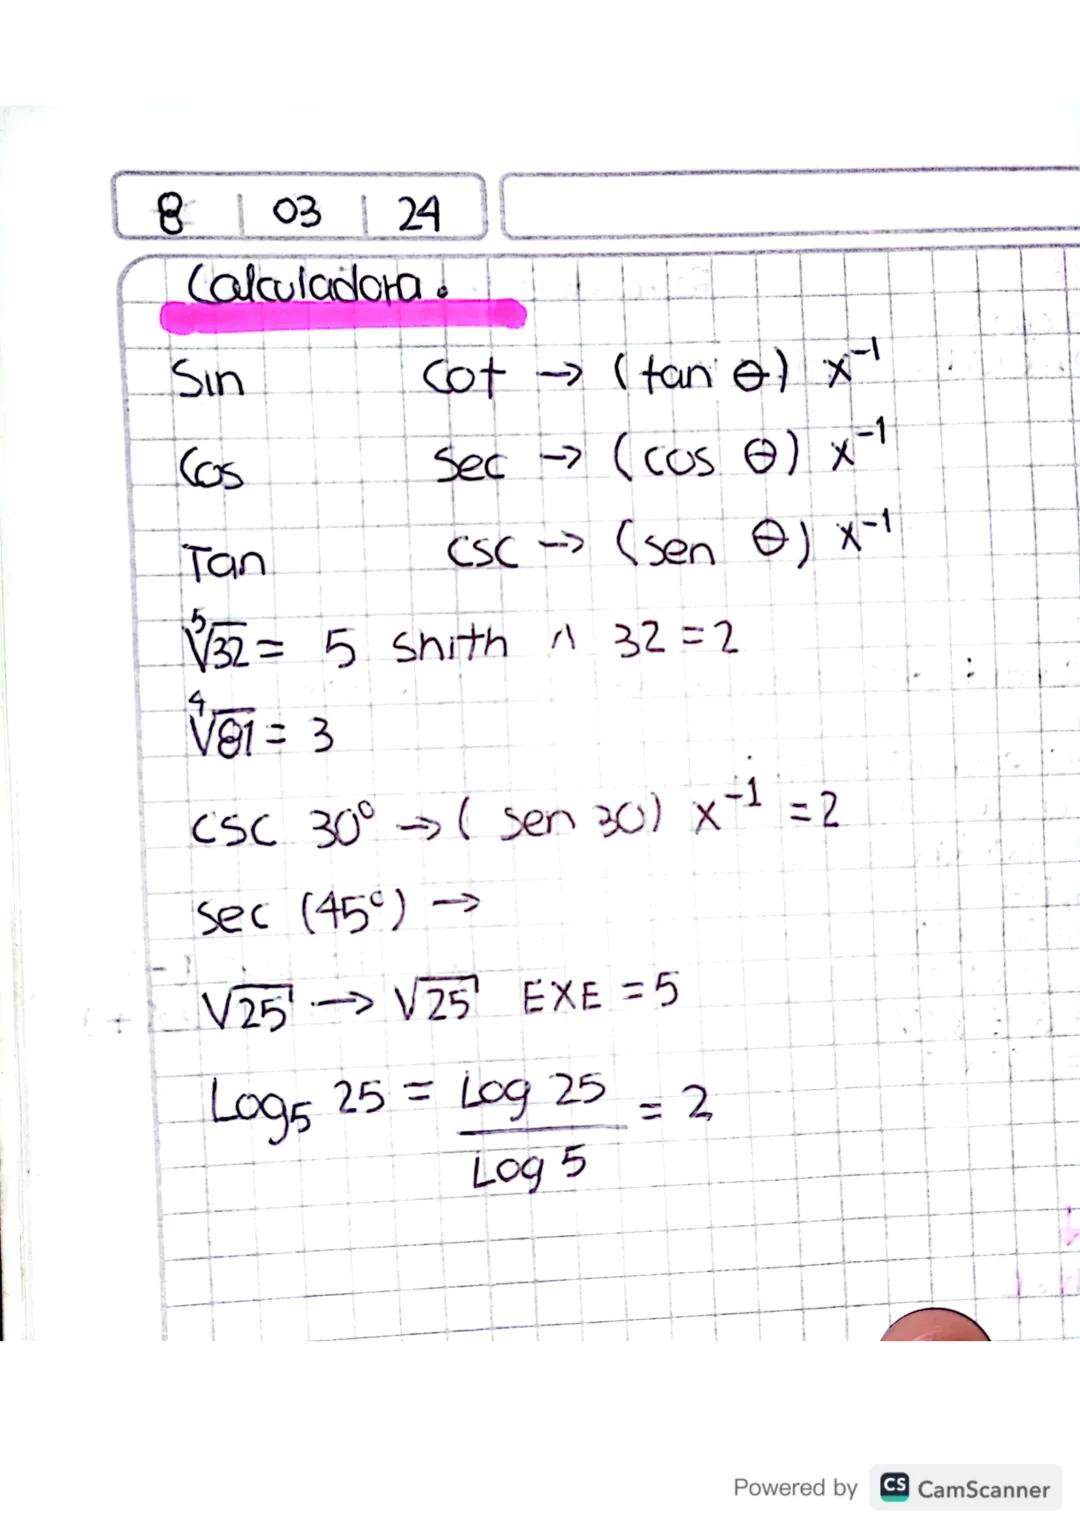 8 | 03 | 24
Calculadora.
Sin Cot → (tan θ) x⁻¹
Cos Sec → (cos θ) x⁻¹
Tan CSC → (sen θ) x⁻¹
⁵√32 = 5 shith ∧ 32 = 2
⁴√81 = 3
CSC 30° → ( sen 30) x⁻¹ = 2
sec (45°) →
√25 → √25 EXE = 5
Log₅ 25 = Log 25 / Log 5 = 2
Powered by CS CamScanner